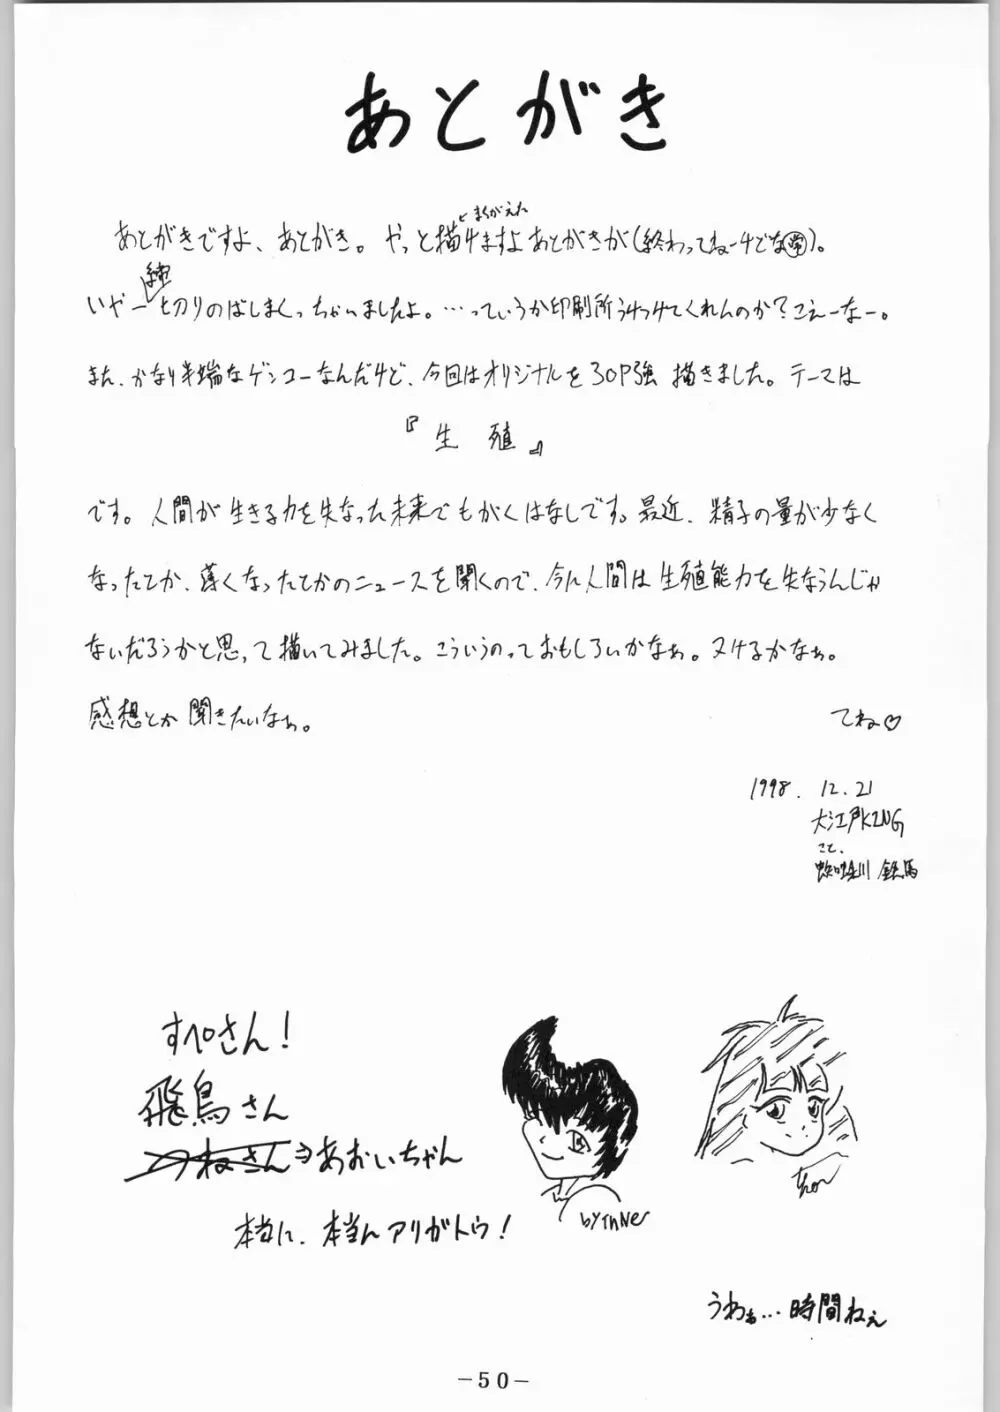 あとがき
まちがえた
あとがきですよ、あとがき。やっと描けますよあとがきが(終わってねーけどな㊙)。
純
いやー〆切りのばしまくっちゃいましたよ。…っていうか印刷所うけつけてくれんのか?こえーなー。
また、かなり半端なゲンコーなんだけど、今回はオリジナルを30P強 描きました。テーマは
『生殖』
です。人間が生きる力を失なった未来でもがくはなしです。最近、精子の量が少なく
なったとか、薄くなったとかのニュースを聞くので、今に人間は生殖能力を失なうんじゃ
ないだろうかと思って描いてみました。こういうのっておもしろいかなぁ。ヌけるかなぁ。
感想とか聞きたいなぁ。
てね♡
1998. 12. 21
大江戸KING
こと、
川 鉄馬
すぺさん!
飛鳥さん
つねさん⇒あおいちゃん
本当に、本当にアリガトウ!
by InNer
うわぁ…時間ねぇ
-50-